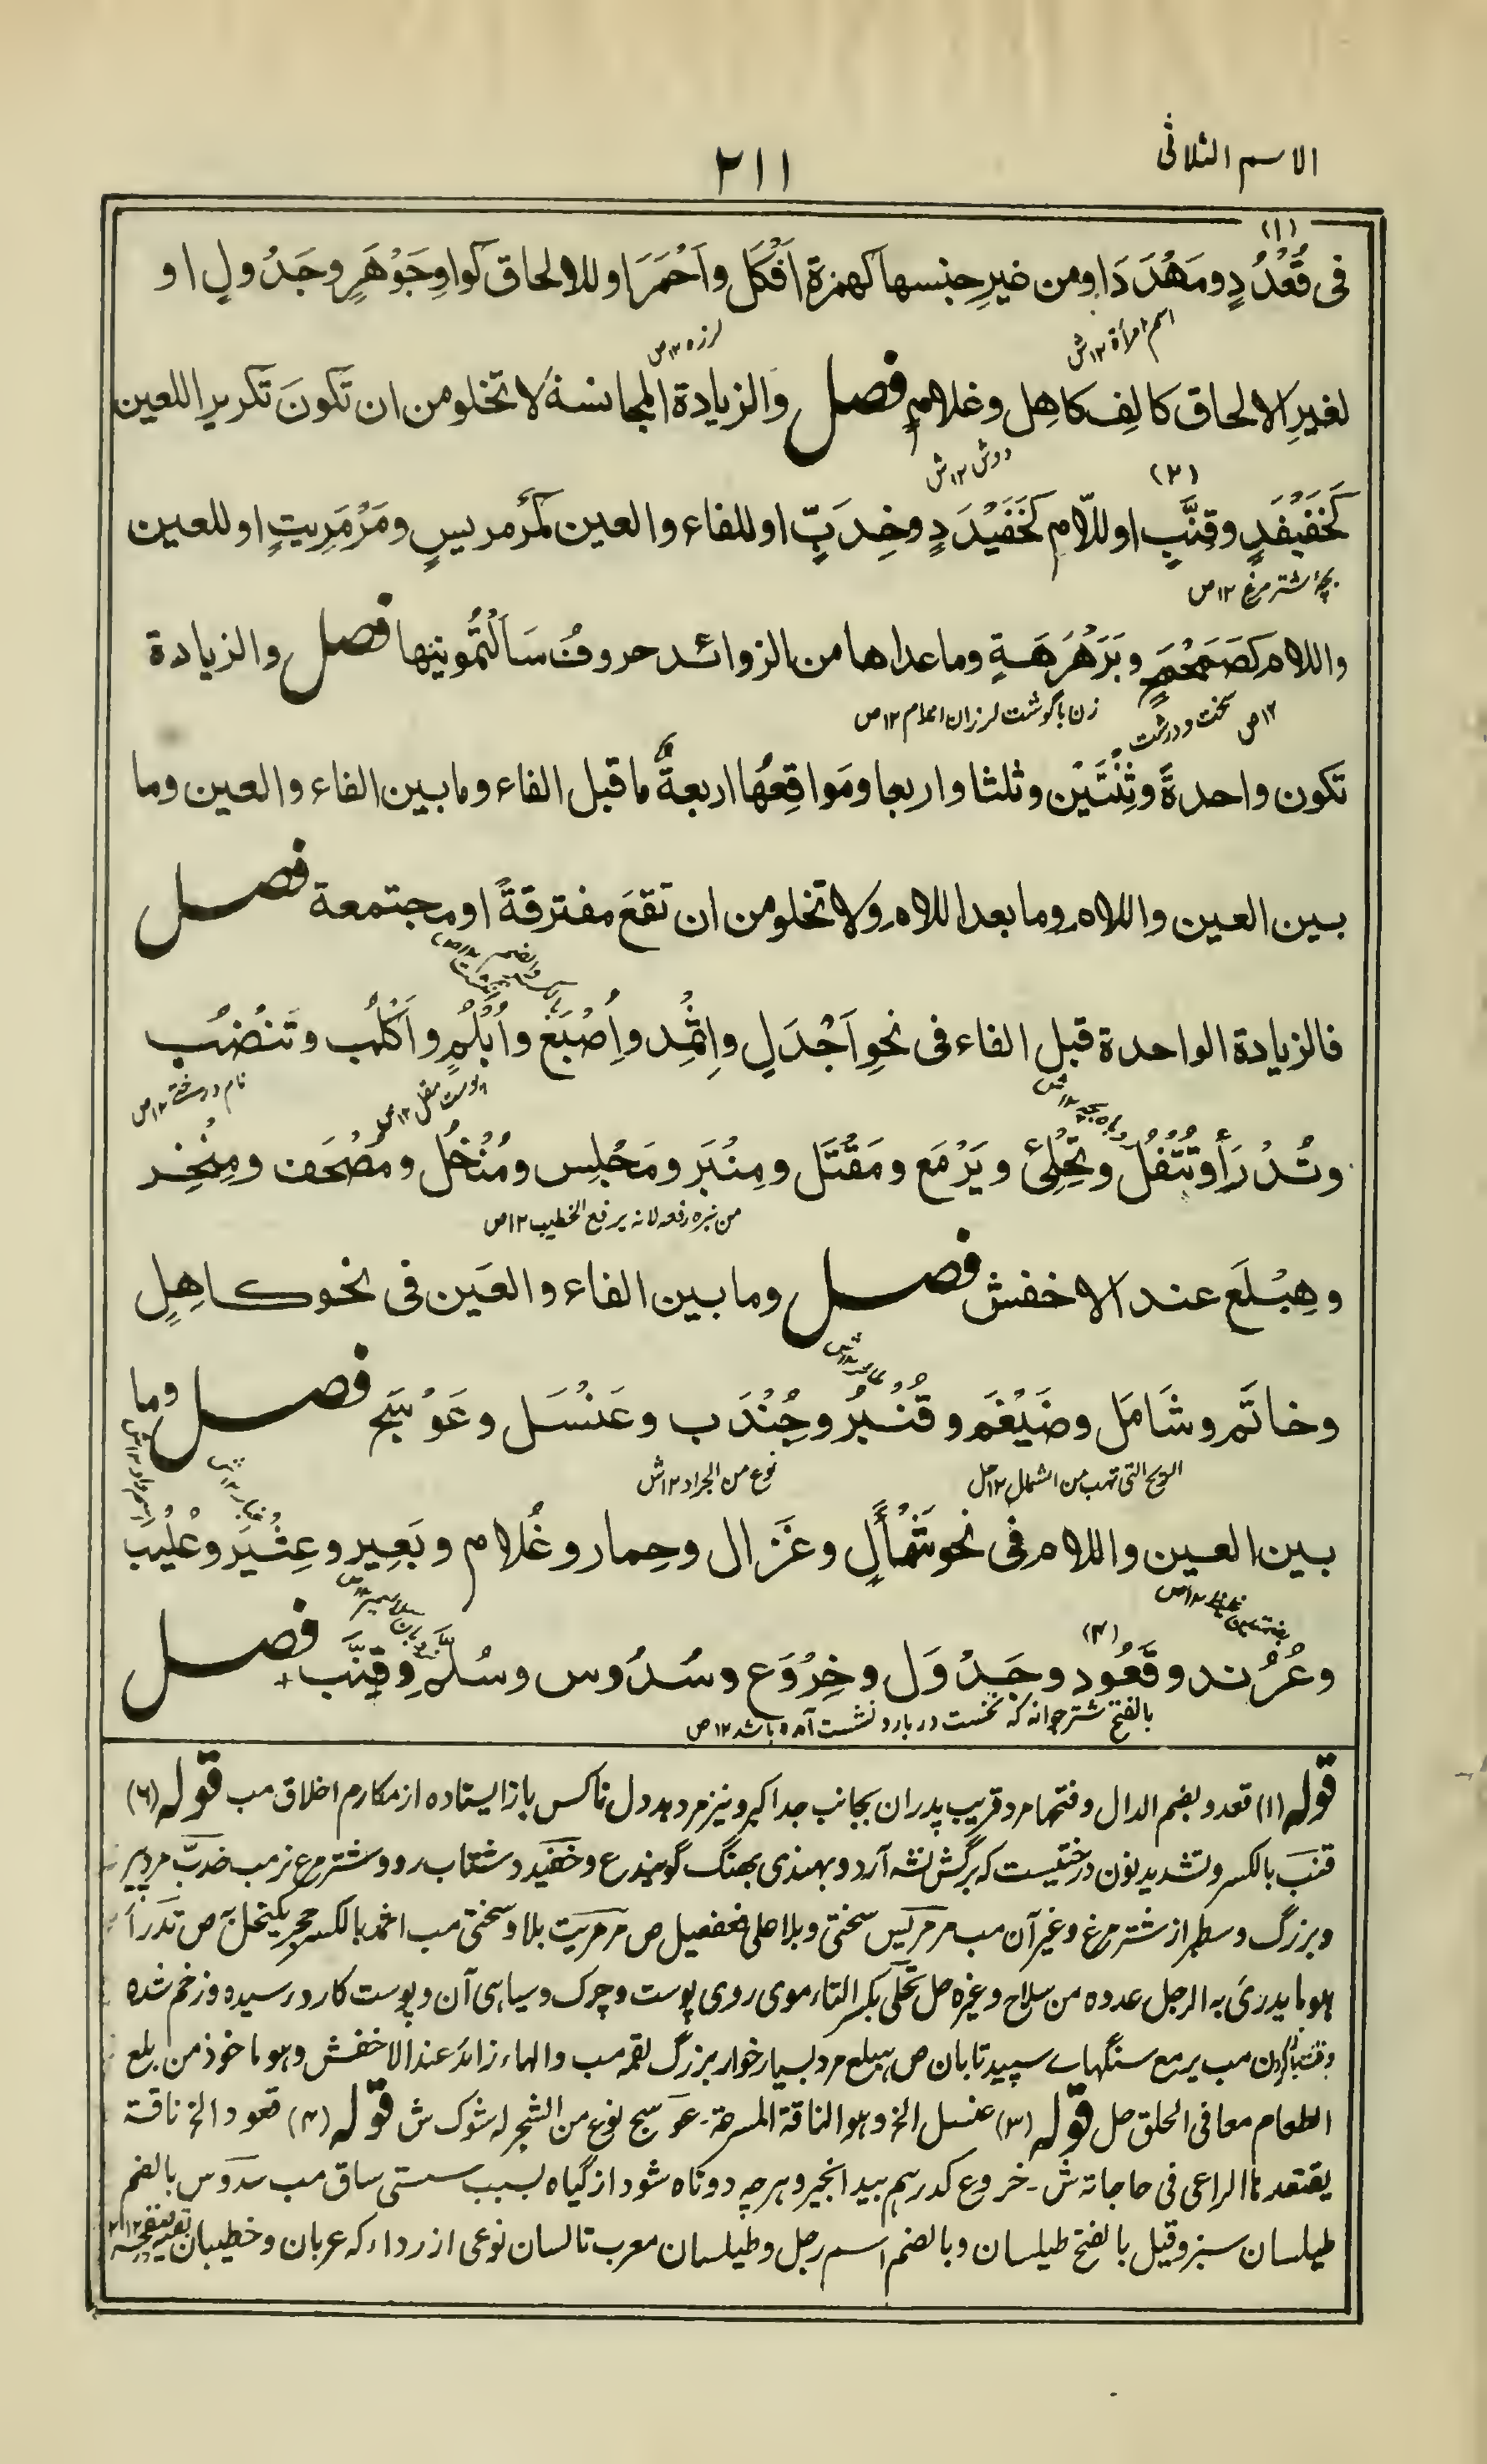 الاسم الثلاثی
٢١١
(١)
فی قُعْدُدٍ ومَهْدَدَ اومن غیرِ جنسها کهمزة اَفْکَل واَحْمَرَ اوللالحاق کواوِ جَوْهَرٍ وجَدْولٍ او
اسم امرأة ١٢ش
لرزه ١٢ص
لغیرِ الالحاق کالِف کاهِل وغلامٍ فصل والزیادة المجانسة لا تخلو من ان تکونَ تکریرا للعین
دوش ١٢ش
(٢)
کَخَفَیْفَدٍ وقِنَّبٍ اوللّام کخَفَیْدَدٍ وخِدَبٍّ اوللفاء والعین کمَرْمریسٍ ومَرْمَرِیتٍ اوللعین
بچۀ شترمرغ ١٢ص
واللام کصَمَحْمَحٍ وبَرَهْرَهَةٍ وما عداها من الزوائد حروف سَاَلْتُمُونیها فصل والزیادة
سخت و درشت ١٢ص
زن با گوشت لرزان اندام ١٢ص
تکون واحدةً وثِنْتَیْن وثلثا واربعا ومَواقِعُها اربعةٌ ما قبل الفاء وما بین الفاء والعین وما
بین العین واللام وما بعد اللام ولا تخلو من ان تقعَ مفترقةً او مجتمعة فصل
فالزیادة الواحدة قبل الفاء فی نحوِ اَجْدَلٍ واِثْمِد واِصْبَع واُبْلُمٍ واَکْلُب وتَنْضُب
پوست مقل ١٢ص
نام درختے ١٢ص
روباه بچه ١٢ص
وتُدْرَأ وتُتْفُل وتِحْلِئ ویَرْمَع ومَقْتَل ومِنْبَر ومَجْلِس ومُنْخُل ومُصْحَف ومِنْخِر
من نبره رفعه لانه یرفع الخطیب ١٢ص
وهِبْلَع عند الاخفش فصل وما بین الفاء والعَین فی نحو کاهِلٍ
وخاتَم وشَامَل وضَیْغَم وقُنْبَر وجُنْدَب وعَنْسَل وعَوْسَج فصل وما
الریح التی تهب من الشمال ١٢ص
نوع من الجراد ١٢ش
بین العین واللام فی نحو شَمْأَلٍ وغَزَال وحِمار وغُلام وبَعِیر وعِثْیَر وعُلْیَب
غبار ١٢ش
(٤)
وعُرُند وقَعُود وجَدْوَل وخِرْوَع وسُدُوس وسُلَّم وقِنَّب فصل
بالفتح شتر جوانه که نخست در بار و نشست آمده باشد ١٢ص
قوله (١) قعدد بضم الدال وفتحها مرد قریب پدران بجانب جد اکبر و نیز مرد بددل ناکس باز ایستاده از مکارم اخلاق مب قوله (٢)
قنب بالکسر وتشدید نون درختیست که برگش نشه آرد و بهندی بهنگ گویند رع وخفید دشتاب رو و شترمرغ نر مب خدبّ مرد پیر
وبزرگ وسطبر از شترمرغ وغیر آن مب مرمریس سختی و بلا علی فعفعیل ص مرمریت بلا وسختی مب اثمد بالکسر حجر یکتحل به ص تدرأ
هو ما یدرئ به الرجل عدوه من سلاح وغیره صل تحلئ بکسر التاء موی روی پوست و چرک و سیاهی آن و پوست کارد رسیده و زخم شده
مب یرمع سنگهاے سپید تابان ص هبلع مرد بسیار خوار بزرگ لقمه مب والهاء زائد عند الاخفش وهو ماخوذ من بلع
الطعام معا فی الحلق صل قوله (٣) عنسل الخ وهو الناقة المسرعة - عوسج نوع من الشجر له شوک ش قوله (٤) قعود الخ ناقة
یقتعدها الراعی فی حاجاته ش - خروع کدرهم بید انجیر و هرچه دوتاه شود از گیاه بسبب سستی ساق مب سدوس بالضم
طیلسان سبز وقیل بالفتح طیلسان وبالضم اسم رجل وطیلسان معرب تالسان نوعی از رداء که عربان و خطیبان بقیه بصفحه ٢١٢